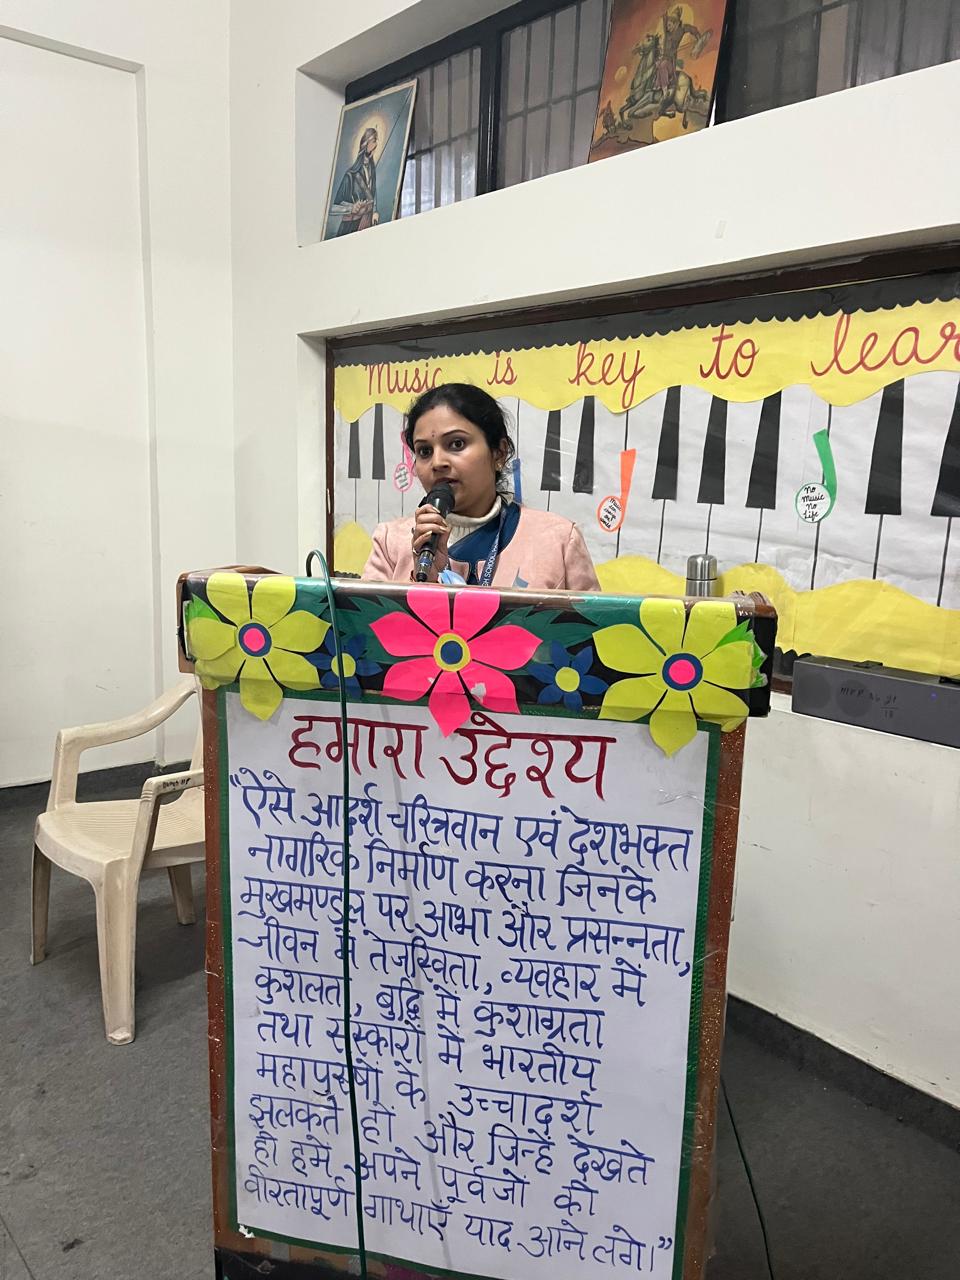 Music is key to lear
No
music
no
life
GH SCHOOL
हमारा उद्देश्य
“ऐसे आदर्श चरित्रवान एवं देशभक्त
नागरिक निर्माण करना जिनके
मुखमण्डल पर आभा और प्रसन्नता,
जीवन में तेजस्विता, व्यवहार में
कुशलता, बुद्धि में कुशाग्रता
तथा संस्कारों में भारतीय
महापुरुषों के उच्चादर्श
झलकते हों और जिन्हें देखते
ही हमें अपने पूर्वजों की
वीरतापूर्ण गाथाएँ याद आने लगे।”